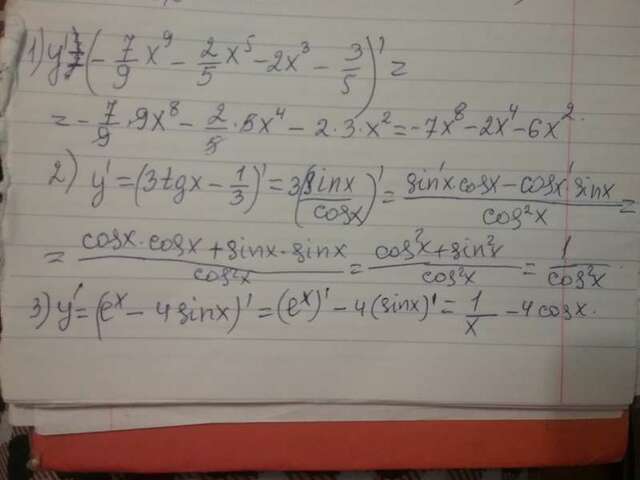 1) y' = (-7/9 x⁹ - 2/5 x⁵ - 2x³ - 3/5)' =
= -7/9 · 9x⁸ - 2/5 · 5x⁴ - 2 · 3 · x² = -7x⁸ - 2x⁴ - 6x².
2) y' = (3tgx - 1/3)' = 3(sinx/cosx)' = (sin'x cosx - cosx' sinx)/cos²x =
= (cosx · cosx + sinx · sinx)/cos²x = (cos²x + sin²x)/cos²x = 1/cos²x.
3) y' = (eˣ - 4sinx)' = (eˣ)' - 4(sinx)' = 1/x - 4cosx.